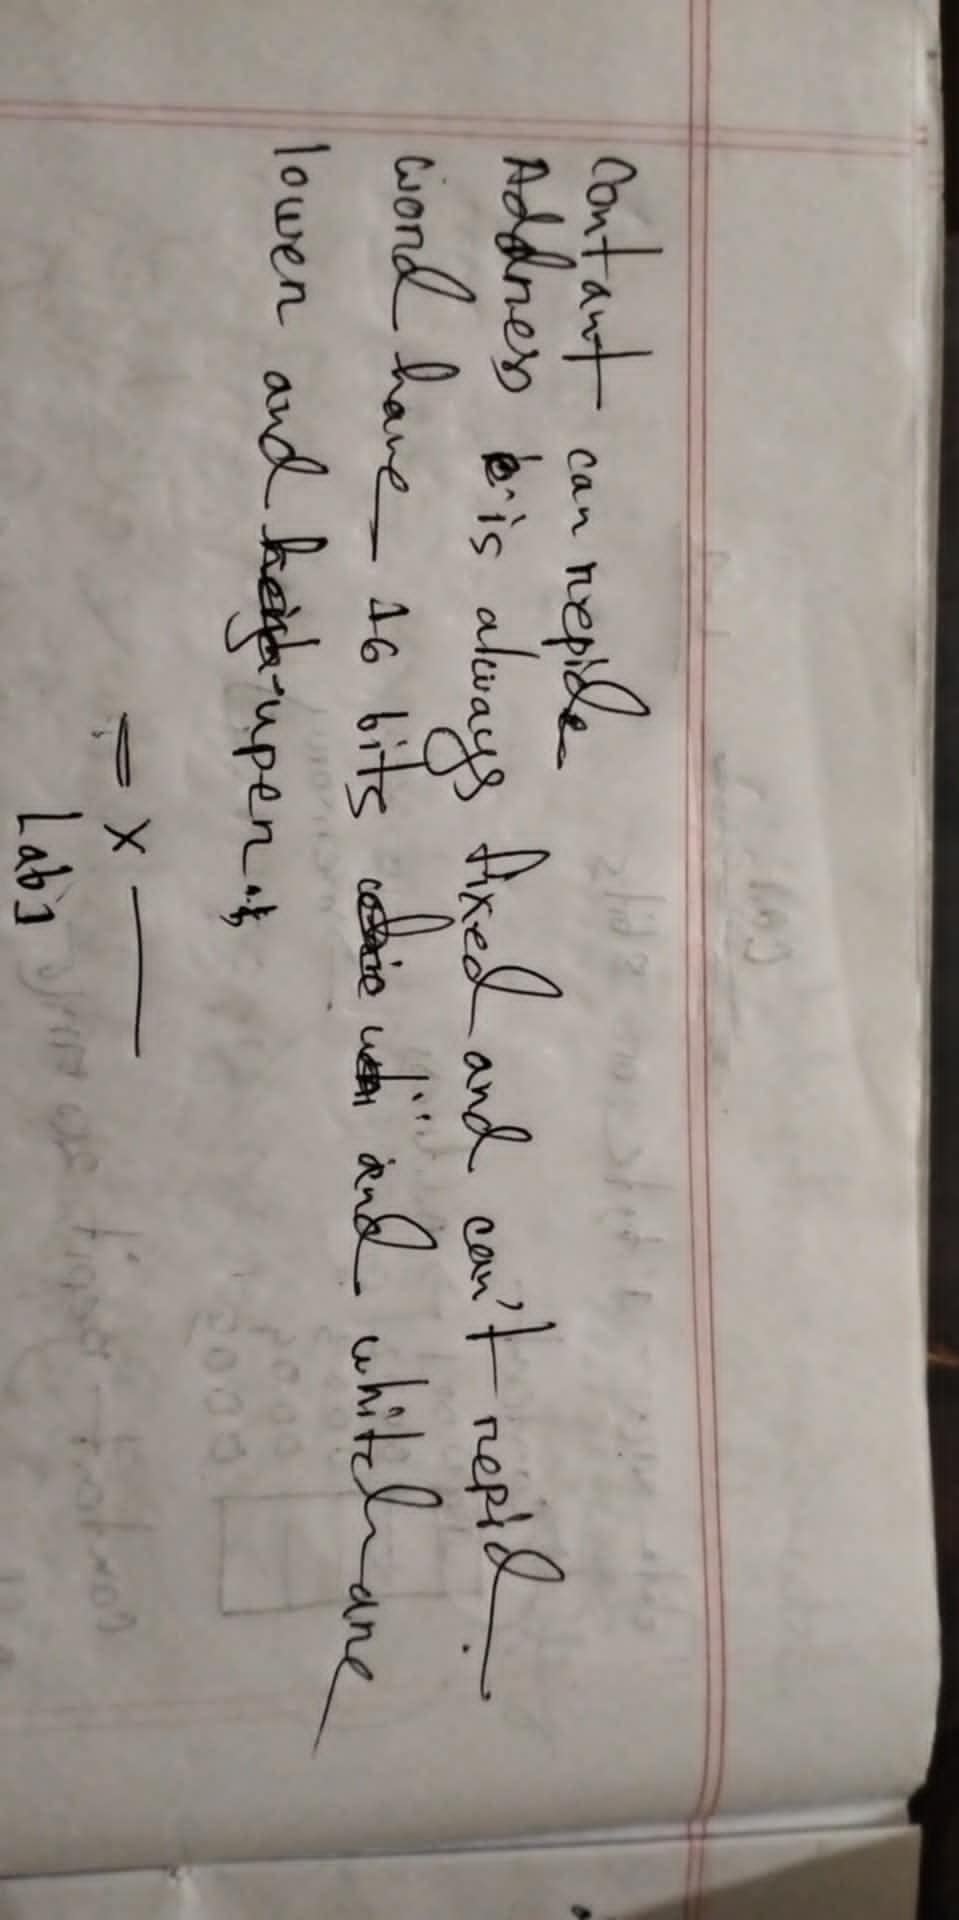 Contant can repid
Address is always fixed and can't repid.
word have 16 bits and whitch are
lower and uper.
x
Lab1